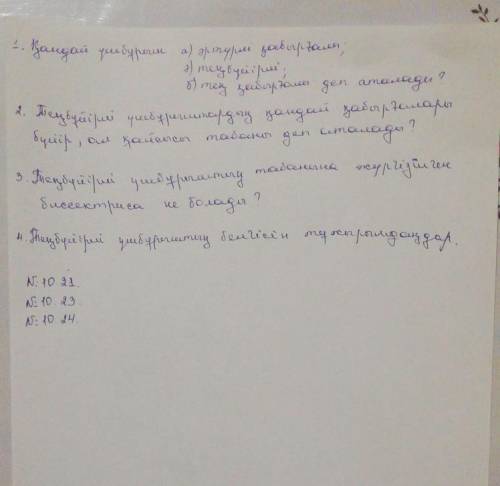 1. Қандай үшбұрыш а) әртүрлі қабырғалы;
ә) теңбүйірлі;
б) тең қабырғалы деп аталады?
2. Теңбүйірлі үшбұрыштардың қандай қабырғалары
бүйір, ал қайсысы табаны деп аталады?
3. Теңбүйірлі үшбұрыштың табанына жүргізілген
биссектриса не болады?
4. Теңбүйірлі үшбұрыштың белгісін тұжырымдаңдар.
№10 21.
№10. 23.
№10 24.